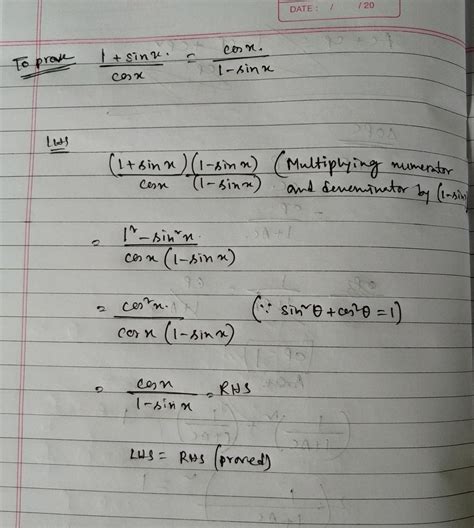 DATE: / /20
To prove (1 + sin x)/(cos x) = (cos x)/(1 - sin x)
LHS
(1 + sin x)/(cos x) (1 - sin x)/(1 - sin x) (Multiplying numerator
and denominator by (1-sin
= (1² - sin²x)/(cos x (1 - sin x))
= (cos²x)/(cos x (1 - sin x)) (∵ sin²θ + cos²θ = 1)
= (cos x)/(1 - sin x) = RHS
LHS = RHS (proved)